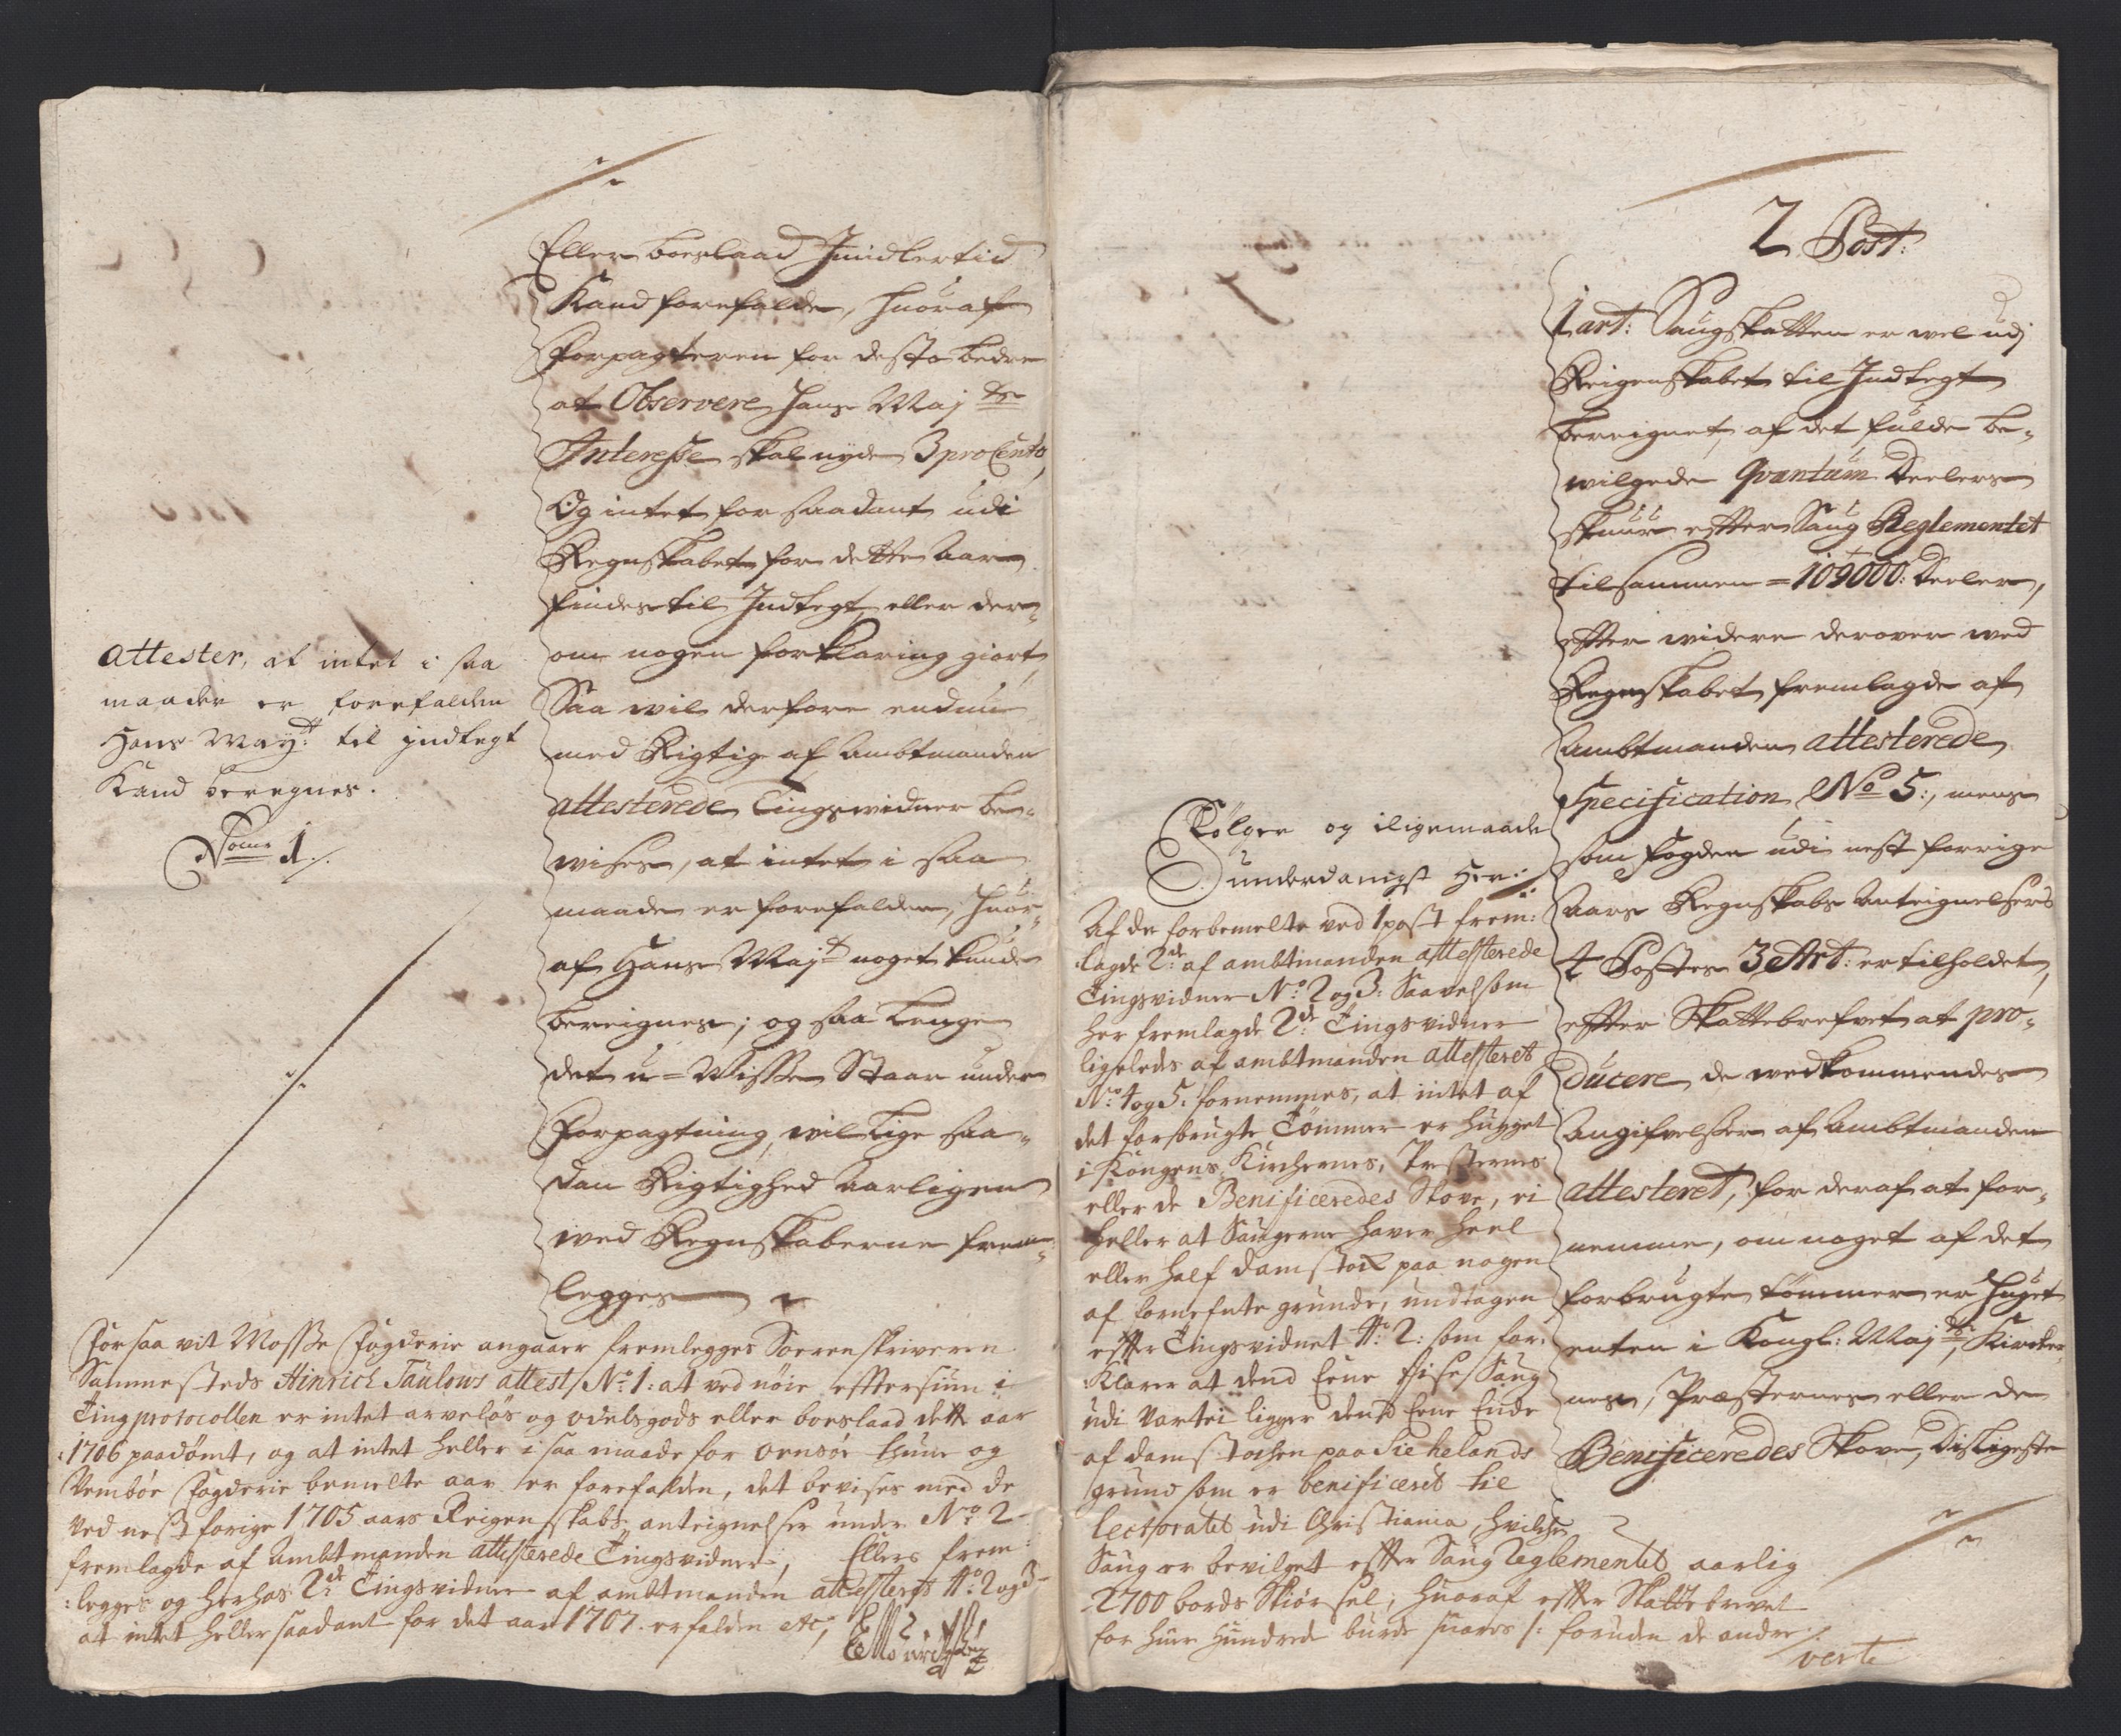 Eller boeslaad Imidlertid
Kand forefalde, huoraf
Forpagteren for desto bedre
at Observere Hans Maj ts
Interesse skal nyde 3 pro Cento,
Og intet for saadant udi
Regnskabet for dette Aar
findes til Indtegt, eller der-
om nogen forklaring giort,
Saa vil derfore endnu
med Rigtige af Ambtmanden
attesterede Tingsvidner be-
vises, at intet i saa
maade er forefalden, huor-
af Hans Maj t noget kunde
bereignes; og saa lenge
det u-Visse Staar under
Forpagtning, vil lige saa-
dan Rigtighed Aarligen
ved Regnskaberne frem-
legges
attester, at intet i saa
maade er forefalden
Hans May t: til jndtegt
Kand beregnes.
Noms 1 ./.
For saa vit Mosse Fogderie angaaer fremlegges Soerenskriveren
Sammesteds Hinrich Taulows attest No 1: at ved nøie efftersiun i
Tingprotocollen er intet arveløs og odelsgods eller boeslaad dette aar
1706 paadømt, og at intet heller i saa maade for Onsøe Thune og
Vembøe Fogderie bemelte aar er forefalden, det bevises med de
ved nest forige 1705 aars Reigenskabs anteignelser under No 2
fremlagde af Ambtmanden attesterede Tingsvidner, Ellers frem:
:legges og herhos 2de Tingsvidner af ambtmanden attesteret No: 2 og 3
at intet heller saadant for det aar 1707. er falden etc,
2 Post:
1 art: Saugskatten er vel udj
Reigenskabet til Indtegt
bereignet, af det fulde be-
vilgede Qvantum Deelers
skuur effter Saug Reglementet
tilsammen = 109000: Deeler,
effter videre derover ved
Regnskabet fremlagde af
Ambtmanden attesterede
Specification No 5:, mens
som fogden udi nest forrige
Aars Regnskabs Anteignelsers
4 Postes 3 Art: er tilholdet,
effter Skattebrefvet at pro-
ducere de vedkommendes
Angifvelser af Ambtmanden
attesteret, for deraf at for-
nemme, om noget af det
forbrugte tømmer er huget
enten i Kongl: Maj ts, Kircker-
nes, Præsternes eller de
Benificeredes Skove, Disligeste
Følger og iligemaade
underdanigst her:
Af de forbemelte ved 1 post frem:
lagde 2de af ambtmanden attesterede
Tingsvidner No: 2 og 3: Saavelsom
her fremlagde 2de Tingsvidner
ligeleds af ambtmanden attesteret
No: 4 og 5: fornemmes, at intet af
det forbrugte Tømmer er hugget
i Kongens, Kirchernes, Presternes
eller de Benificeredes Skove, ei
heller at Saugerne haver heel
eller half damstock paa nogen
af fornefnte grunde, undtagen
effter Tingsvidnet No: 2: som for:
Klarer at dend Eene Saug
udi Vartei ligger dend Eene Ende
af damstochen paa Siehelands
grund som er benificeret til
lectoratet udi Christiania hvilche
Saug er bevilget effter Saug Reglementet aarlig
2700 bords Skiørsel; huoraf effter Skattebrevet
for huer hundrede burde svares /: foruden de andre :/
verte